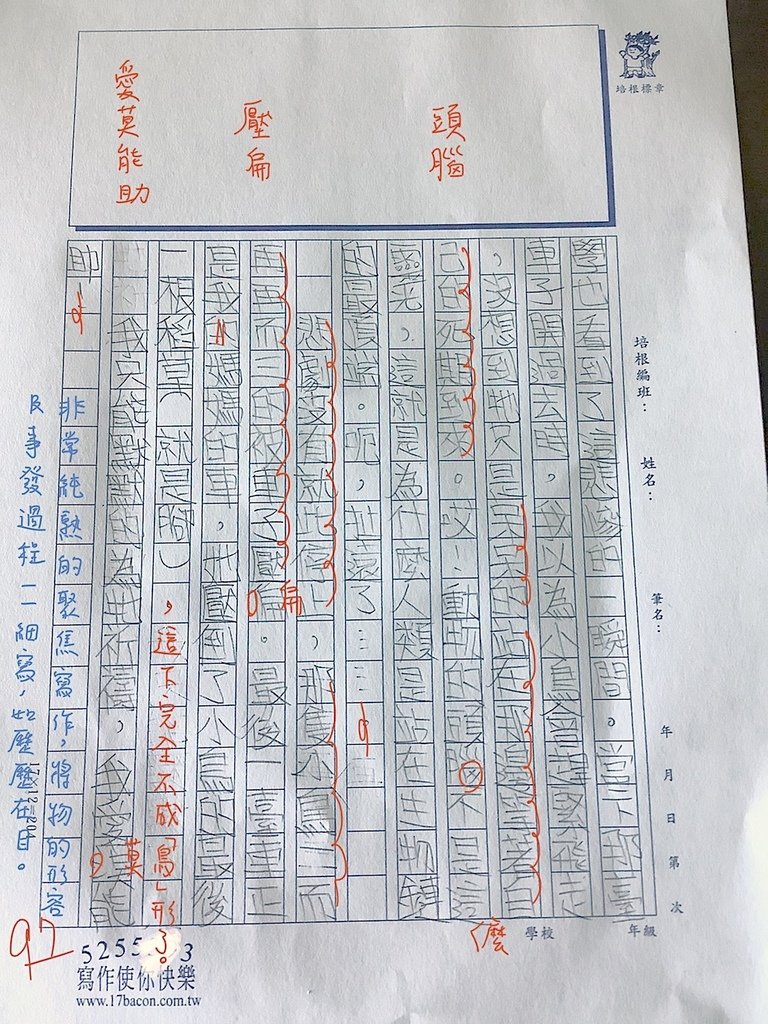 培根標章
頭腦
壓扁
愛莫能助
培根編班：
姓名：
筆名：
年 月 日 第 次
學校
年級
學也看到了這悲慘的一瞬間。當下那臺
車子開過去時，我以為小鳥會趕緊飛走
，沒想到牠只是呆呆的站在那邊望著自
己的死期到來。哎！動物的頭腦不是這
麼
靈光，這就是為什麼人類是站在生物鏈
的最頂端。呃，扯遠了……
悲劇沒有就此停止，那隻小鳥三而
再再而三的被車子壓扁。最後一臺車正
扁
是我媽媽的車，牠壓到了小鳥的最後
一根稻草（就是腳），這下完全不成「鳥」形了。
我只能默默的為牠祈禱，我愛莫能
莫
助
非常純熟的聚焦寫作，將物的形容
及事發過程一一細寫，如歷歷在目。
97
5255 3
寫作使你快樂
www.17bacon.com.tw